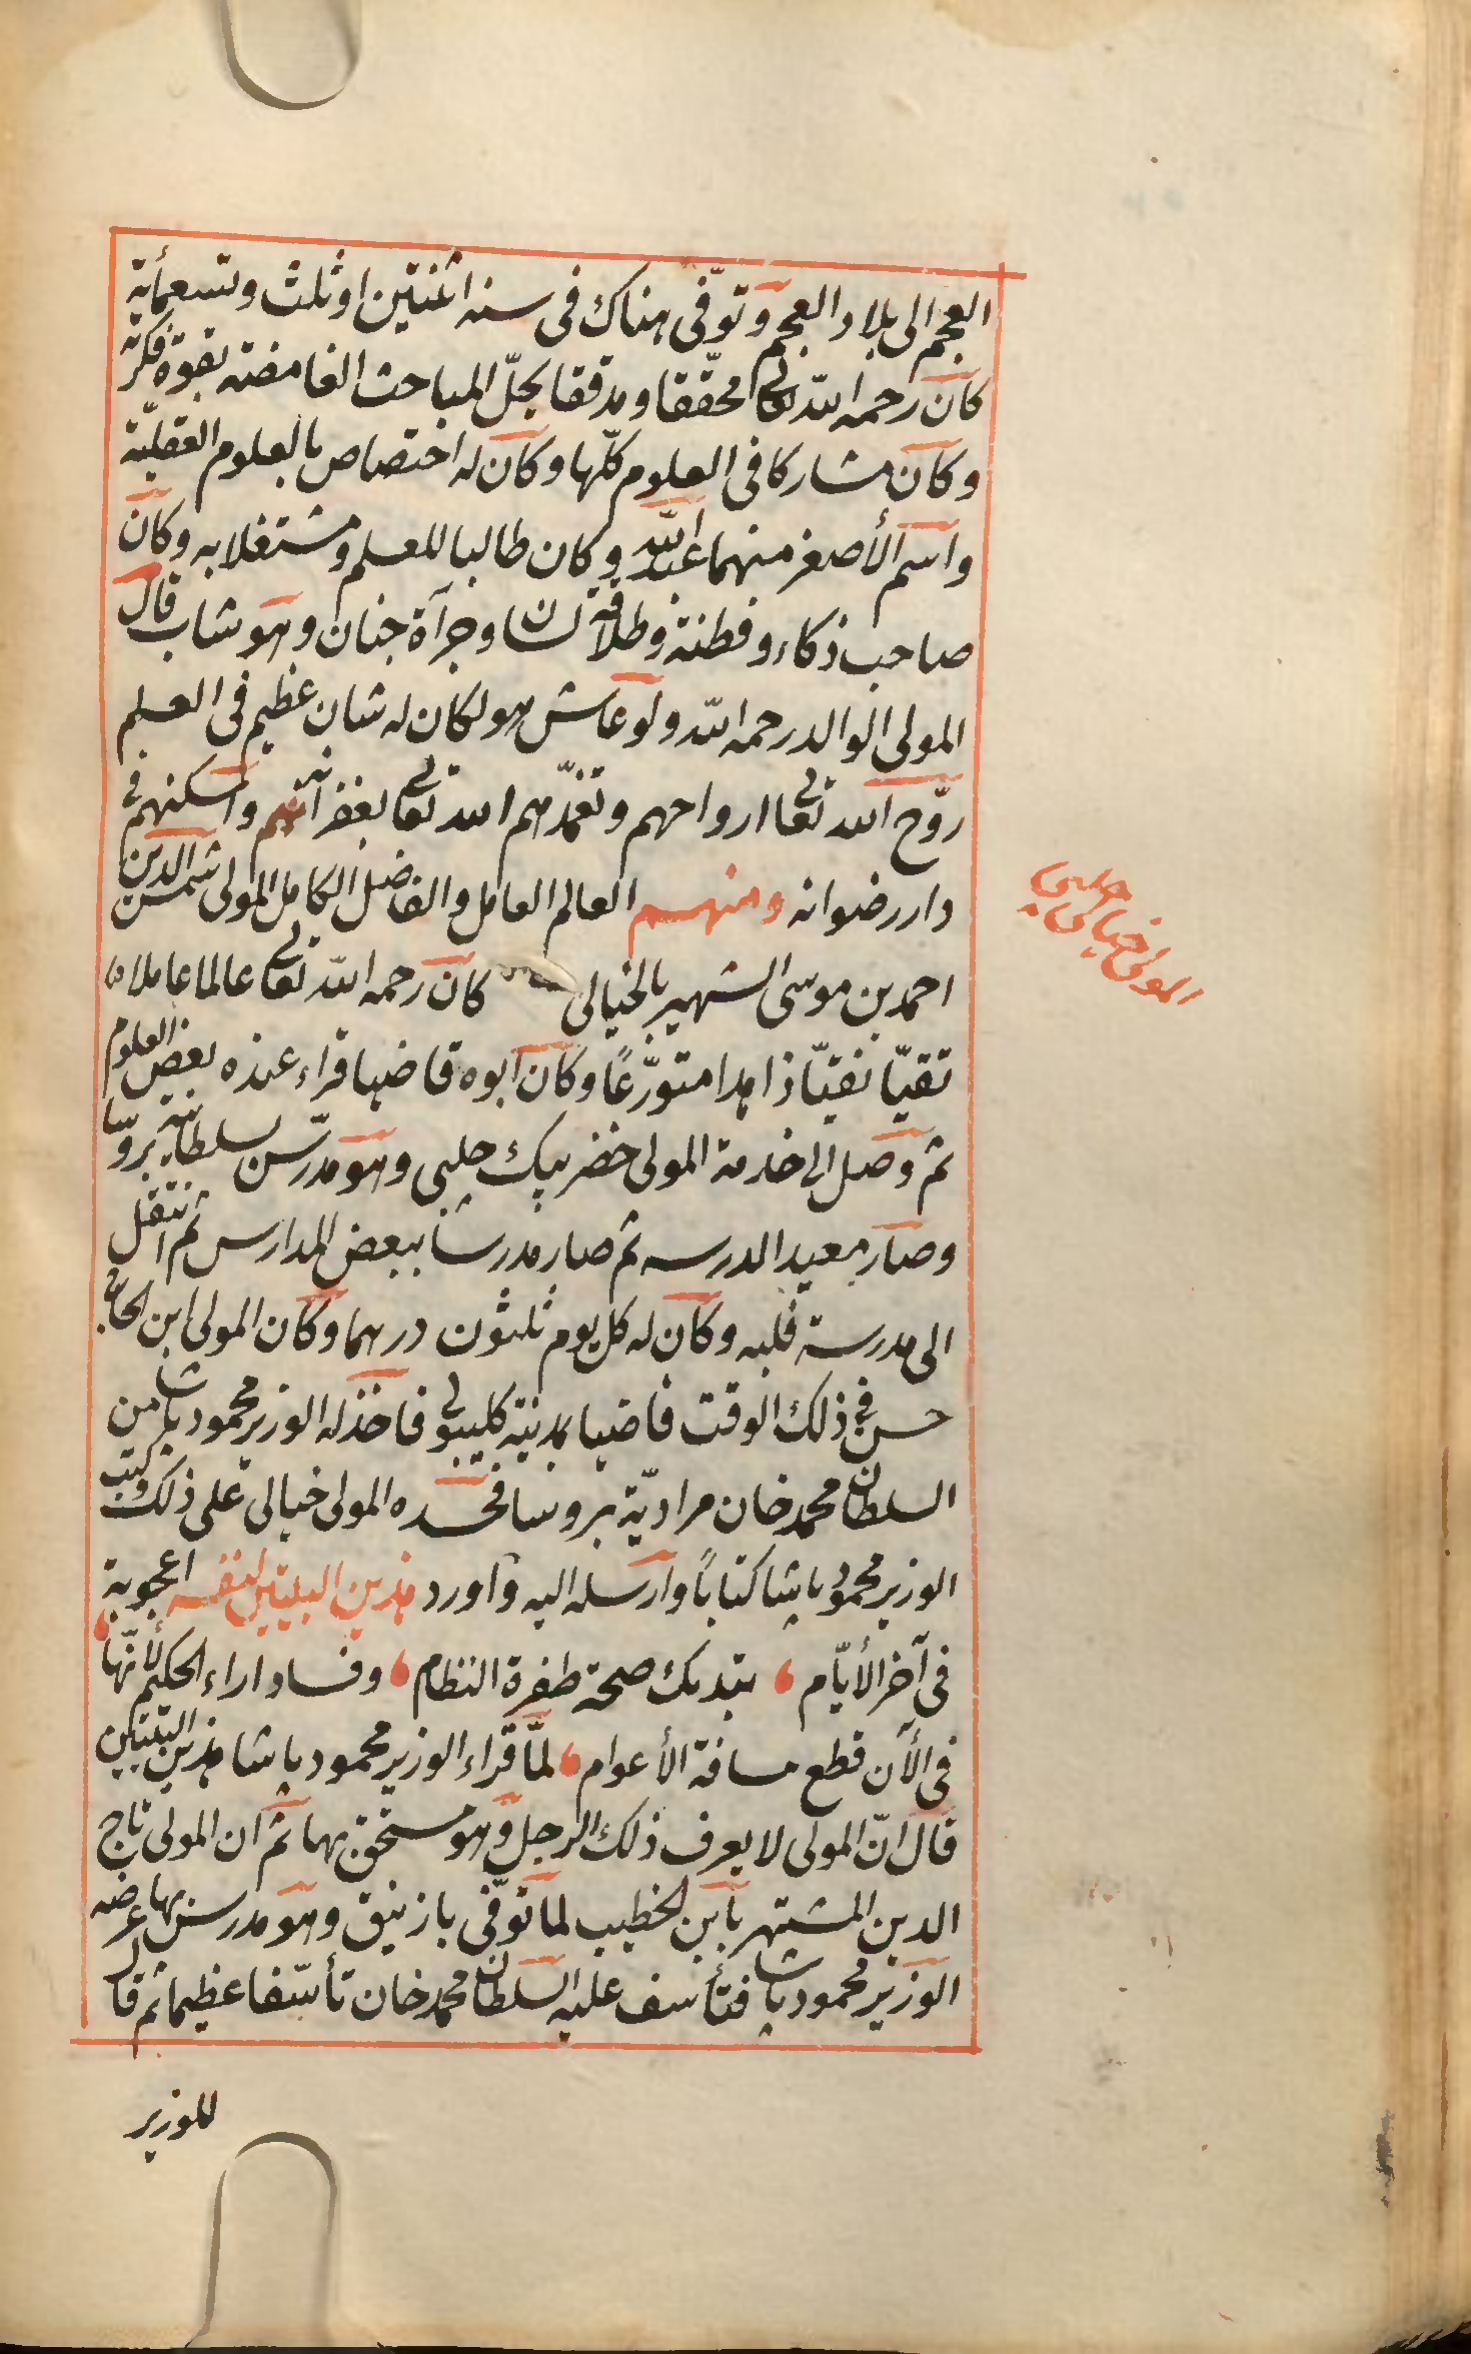 العجم الى بلاد العجم وتوفّى هناك فى سنه اثنتين او ثلث وتسعمأية
كان رحمه اللّه تعالى محقّقا ومدققا يحلّ المباحث الغامضته بقوة فكرته
وكان مشاركا فى العلوم كلّها وكان له اختصاص بالعلوم العقليّة
واسم الأصغر منهما عبد اللّه وكان طالبا للعلم ومشتغلا به وكان
صاحب ذكاء وفطنة وطلاقة لسان وجرآة جنان وهو شاب قال
المولى الوالد رحمه اللّه ولو عاش هو لكان له شان عظيم فى العلم
روّح اللّه تعالى ارواحهم وتغمّدهم اللّه تعالى بغفرانه واسكنهم فى
دار رضوانه ومنهم العالم العامل والفاضل الكامل المولى شمس الدين
احمد بن موسى الشهير بالخيالى كان رحمه اللّه تعالى عالما عاملا
تقيّا نقيّا زاهدا متورّعًا وكان ابوه قاضيا قراء عنده بعض العلوم
ثم وصل الى خدمة المولى خضر بيك جلبى وهو مدرّس بسلطانية بروسا
وصار معيد الدرسه ثم صار مدرسا ببعض المدارس ثم انتقل
الى مدرسة فلبه وكان له كل يوم ثلثون درهما وكان المولى ابن الحاج
حسن فى ذلك الوقت قاضيا بمدينة كليبولى فاخذ له الوزير محمود باشا من
السلطان محمد خان مراديّة بروسا فحسده المولى خيالى على ذلك وكتب
الوزير محمود باشا كتابًا وارسله اليه واورد هذين البيتين لنفسه اعجوبة
فى آخر الأيّام ، تبدى لك صحة طفرة النظام ، وفساد اراء الحكيم لأنّها ،
فى الآن قطع مسافة الأعوام ، لمّا قراء الوزير محمود پاشا هذين البيتين
قال انّ المولى لا يعرف ذلك الرجل وهو مستحق بها ثم ان المولى تاج
الدين المشتهر بابن الخطيب لما توفّى بازنيق وهو مدرس بها عرضه
الوزير محمود پاشا فتأسف عليه السلطان محمد خان تأسّفا عظيما ثم قال
للوزير
المولى خيالى جلبى